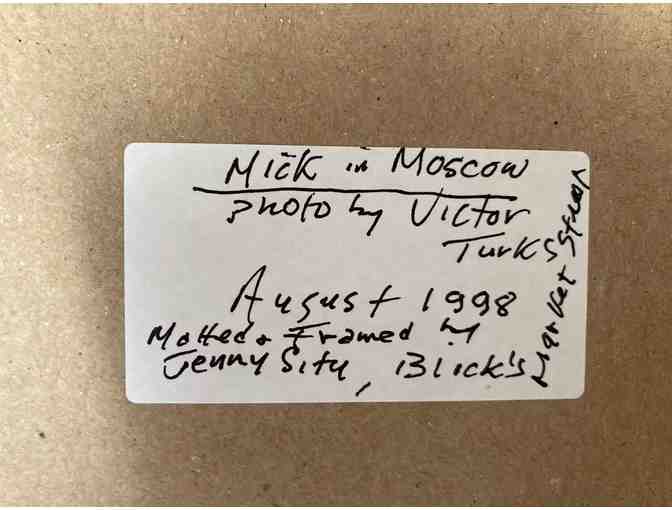 Mick in Moscow
photo by Victor
Turks
August 1998
Matted & Framed by
Jenny Situ, Blick's
Market Street